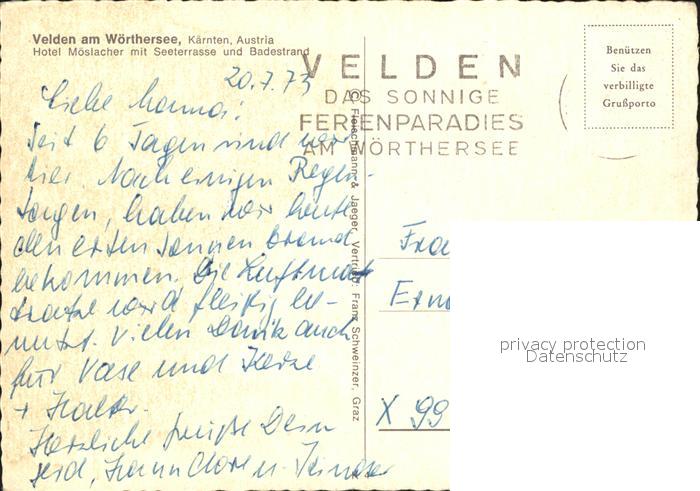 Velden am Wörthersee, Kärnten, Austria
Hotel Möslacher mit Seeterrasse und Badestrand
VELDEN
DAS SONNIGE
FERIENPARADIES
AM WÖRTHERSEE
Benützen
Sie das
verbilligte
Grußporto
20.7.73
Liebe Hanna!
Seit 6 Tagen sind wir
hier. Nach einigen Regen-
tagen, haben wir heute
den ersten Sonnenbrand
bekommen. Die Luftmat
tratze wird fleißig be-
nutzt. Vielen Dank auch
für Vase und Kerze
+ Halter.
Herzliche Grüße Dein
Hannelore u.
© Fleischmann & Jaeger, Vertrieb: Franz Schweinzer, Graz
Fra
Ern
X 99
privacy protection
Datenschutz